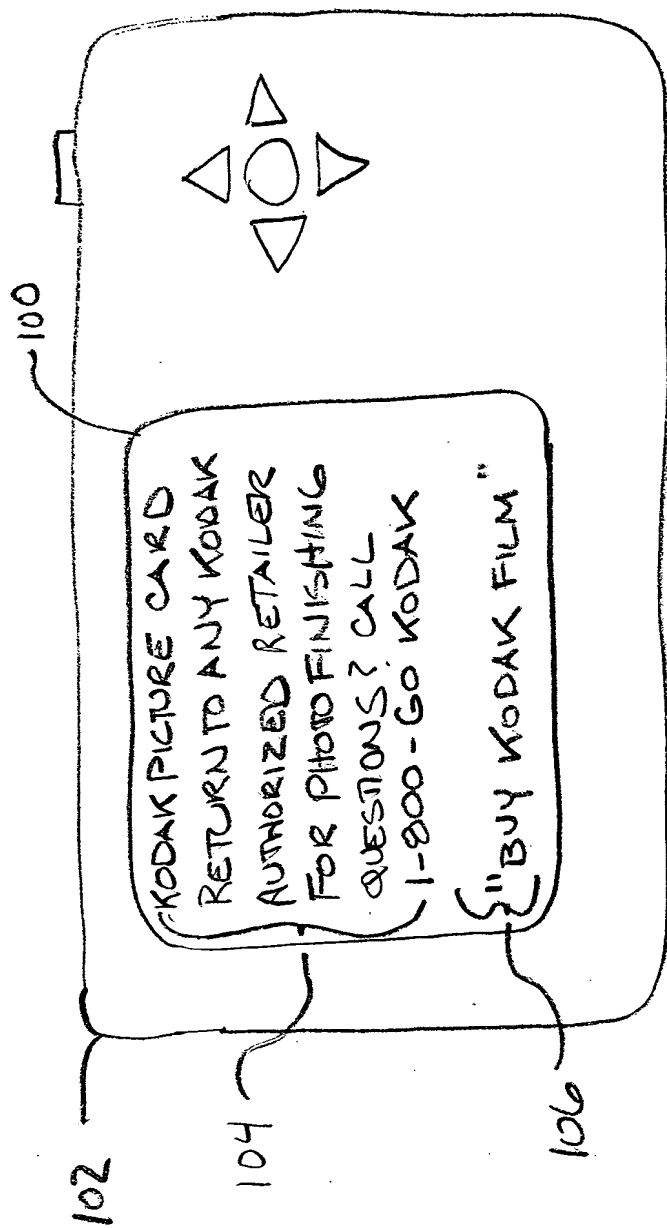 100
KODAK PICTURE CARD
RETURN TO ANY KODAK
AUTHORIZED RETAILER
FOR PHOTOFINISHING
QUESTIONS? CALL
1-800-GO KODAK
"BUY KODAK FILM"
102
104
106